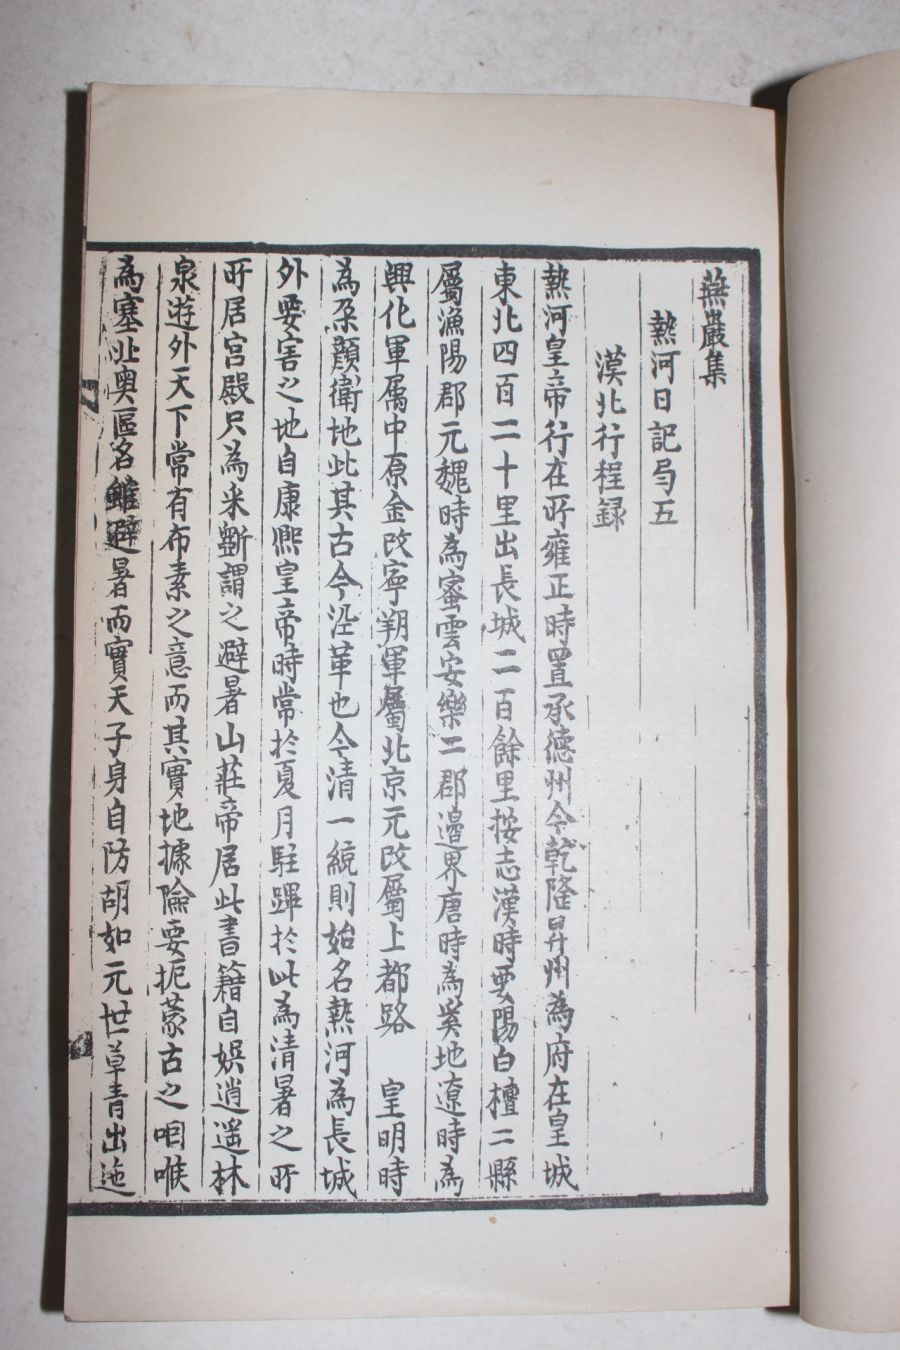 燕巖集
熱河日記勻五
漠北行程録
熱河皇帝行在所雍正時置承德州今乾隆昇州為府在皇城
東北四百二十里出長城二百餘里按志漢時要陽白檀二縣
屬漁陽郡元魏時為蜜雲安樂二郡邊界唐時為奚地遼時為
興化軍属中京金改寧朔軍屬北京元改屬上都路 皇明時
為朶顏衛地此其古今沿革也今清一統則始名熱河為長城
外要害之地自康熙皇帝時常於夏月駐蹕於此為清暑之所
所居宫殿只為采斵謂之避暑山莊帝居此書籍自娛逍遥林
泉遊外天下常有布素之意而其實地據險要扼蒙古之咽喉
為塞北奥區名雖避暑而實天子身自防胡如元世草青出迤